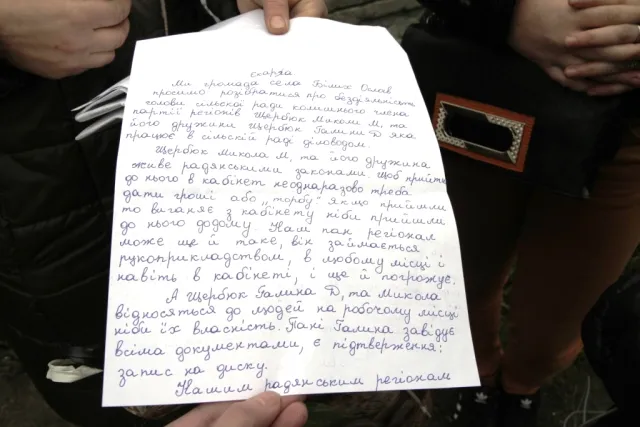 скарга.
Ми громада села Білих Ослав
просимо розібратися про бездіяльність
голови сільскої ради комишнього члена
партії регіонів Щербюк Миколи М, та
його дружини Щербюк Галини Д яка
працює в сільскій раді діловодом.
Щербюк Микола М, та його дружина
живе радянськими законами. щоб прийти
до нього в кабінет неодноразово треба
дати гроші або „торбу" якщо прийшли
то виганяє з кабінету ніби прийшли
до нього додому. Нам пан регіонал
може ще й таке, він займається
рукоприкладством, в любому місці і
навіть в кабінеті, і ще й погрожує.
А Щербюк Галина Д, та Микола
відносяться до людей на робочому місці
ніби їх власність. Пані Галина завідує
всіма документами, є підтверження:
запис на диску.
Нашим радянським регіонам